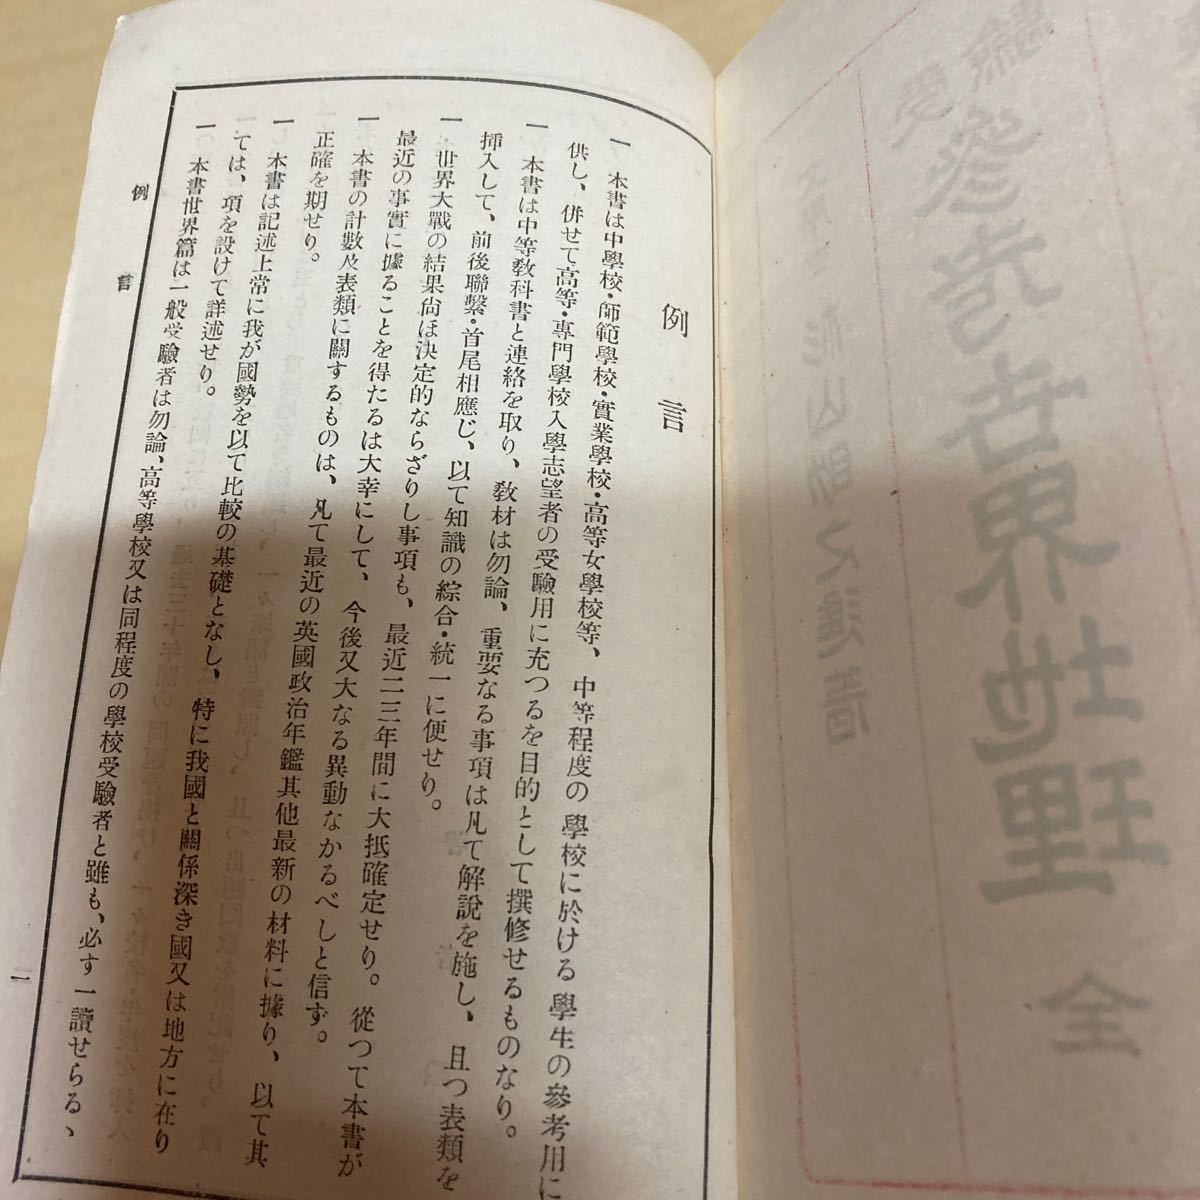 例言
一 本書は中學校・師範學校・實業學校・高等女學校等、中等程度の學校に於ける學生の參考用に
供し、併せて高等・專門學校入學志望者の受驗用に充つるを目的として撰修せるものなり。
一 本書は中等教科書と連絡を取り、教材は勿論、重要なる事項は凡て解說を施し、且つ表類を
挿入して、前後聯繫・首尾相應じ、以て知識の綜合・統一に便せり。
一 世界大戰の結果尙ほ決定的ならざりし事項も、最近二三年間に大抵確定せり。從つて本書が
最近の事實に據ることを得たるは大幸にして、今後又大なる異動なかるべしと信ず。
一 本書の計數及表類に關するものは、凡て最近の英國政治年鑑其他最新の材料に據り、以て其
正確を期せり。
一 本書は記述上常に我が國勢を以て比較の基礎となし、特に我國と關係深き國又は地方に在り
ては、項を設けて詳述せり。
一 本書世界篇は一般受驗者は勿論、高等學校又は同程度の學校受驗者と雖も、必ず一讀せらるゝ
例言
一
世界地理
全